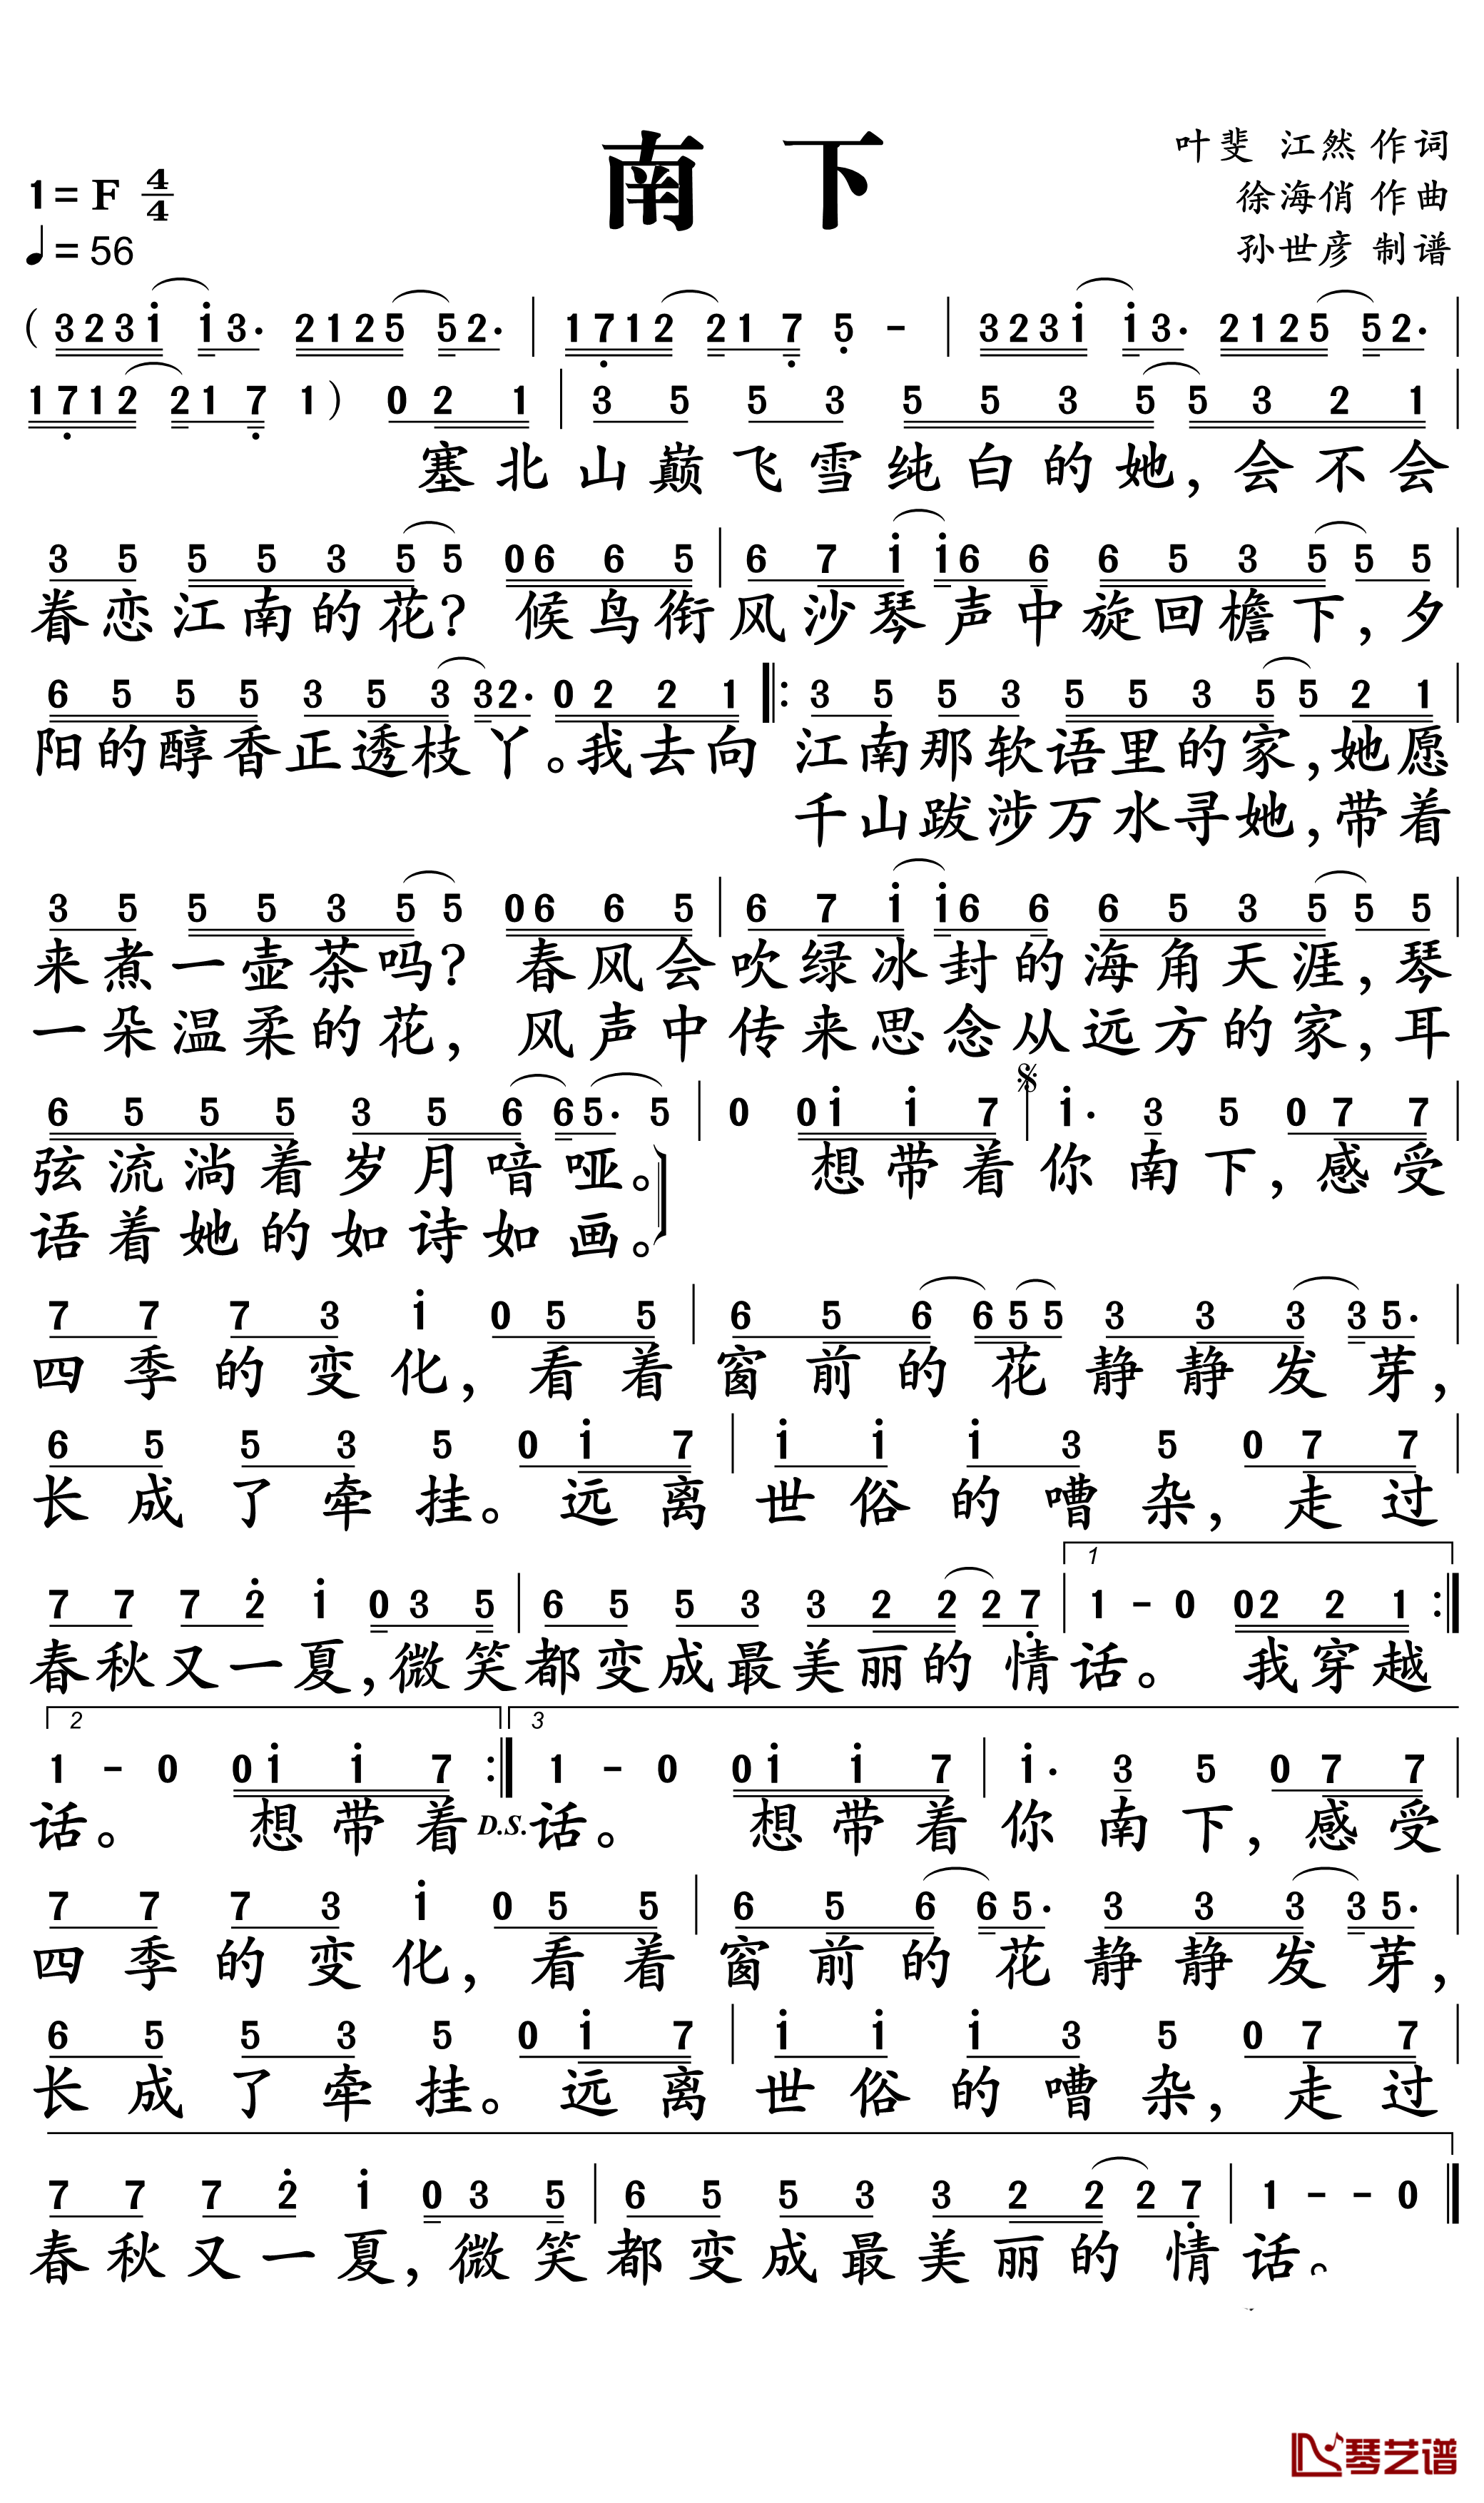 南 下
叶斐 江然 作词
徐海俏 作曲
孙世彦 制谱
1=F 4/4
♩=56
(3231̇ 1̇3· 2125 52· | 17̣12 217̣ 5̣ - | 3231̇ 1̇3· 2125 52· |
17̣12 217̣ 1) 0 2 1 | 3 5 5 3 5 5 3 5 5 3 2 1 |
塞北山巅飞雪纯白的她,会不会
3 5 5 5 3 5 5 06 6 5 | 6 7 1̇ 1̇6 6 6 5 3 5 5 5 |
眷恋江南的花? 候鸟衔风沙琴声中旋回檐下,夕
6 5 5 5 3 5 3 32· 02 2 1 ‖: 3 5 5 3 5 5 3 5 5 2 1 |
阳的醇香正透枝丫。我去向 江南那软语里的家,她愿
千山跋涉万水寻她,带着
3 5 5 5 3 5 5 06 6 5 | 6 7 1̇ 1̇6 6 6 5 3 5 5 5 |
来煮一壶茶吗? 春风会吹绿冰封的海角天涯,琴
一朵温柔的花, 风声中传来思念从远方的家,耳
6 5 5 5 3 5 6 65· 5 | 0 01̇ 1̇ 7 | 1̇· 3 5 0 7 7 |
弦流淌着岁月喑哑。 想带着你南下,感受
语着她的如诗如画。
7 7 7 3 1̇ 0 5 5 | 6 5 6 6 5 5 3 3 3 35· |
四季的变化,看着窗前的花静静发芽,
6 5 5 3 5 0 1̇ 7 | 1̇ 1̇ 1̇ 3 5 0 7 7 |
长成了牵挂。远离世俗的嘈杂,走过
1
7 7 7 2̇ 1̇ 0 3 5 | 6 5 5 3 3 2 2 2 7̣ | 1 - 0 02 2 1 :‖
春秋又一夏,微笑都变成最美丽的情话。 我穿越
2 3
1 - 0 01̇ 1̇ 7 :‖ 1 - 0 01̇ 1̇ 7 | 1̇· 3 5 0 7 7 |
话。 想带着 D.S. 话。 想带着你南下,感受
7 7 7 3 1̇ 0 5 5 | 6 5 6 6 5· 3 3 3 35· |
四季的变化,看着窗前的花静静发芽,
6 5 5 3 5 0 1̇ 7 | 1̇ 1̇ 1̇ 3 5 0 7 7 |
长成了牵挂。远离世俗的嘈杂,走过
7 7 7 2̇ 1̇ 0 3 5 | 6 5 5 3 3 2 2 2 7̣ | 1 - - 0 ‖
春秋又一夏,微笑都变成最美丽的情话。
琴艺谱